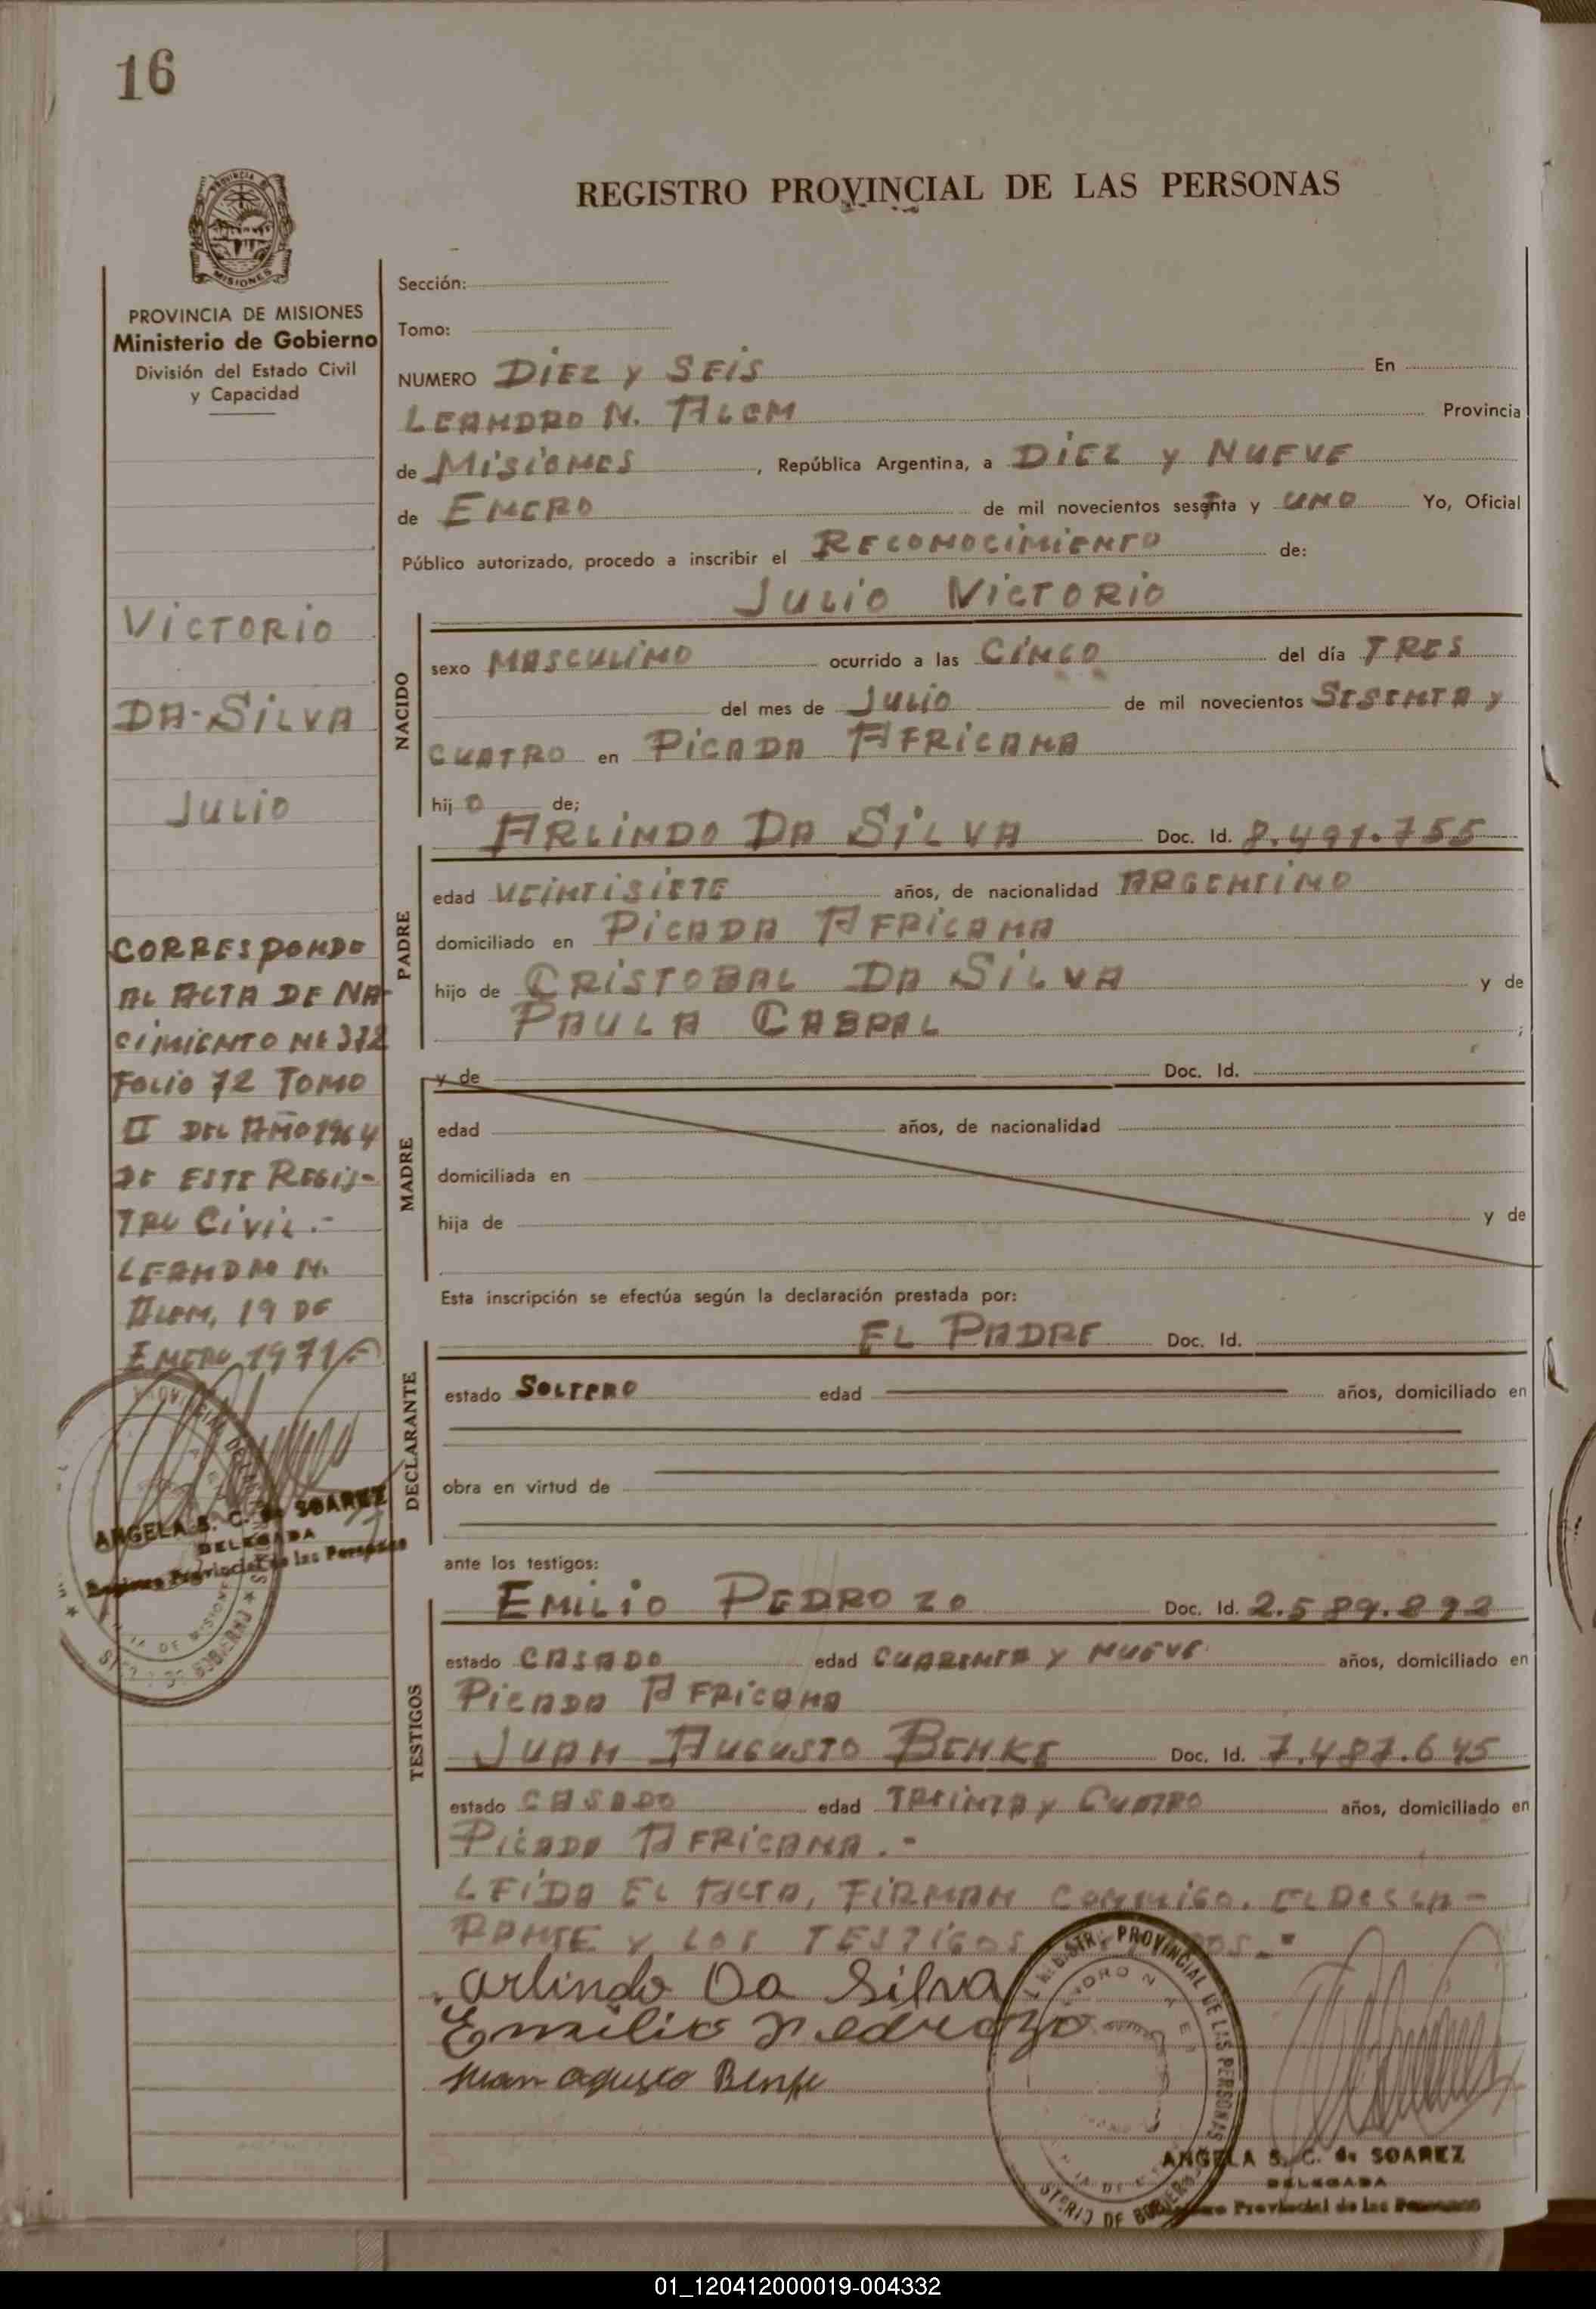 16
REGISTRO PROVINCIAL DE LAS PERSONAS
PROVINCIA DE MISIONES
Ministerio de Gobierno
División del Estado Civil
y Capacidad
VICTORIO
DA-SILVA
JULIO
CORRESPONDO
AL ACTA DE NA-
CIMIENTO Nº 372
FOLIO 72 TOMO
II DEL AÑO 1964
DE ESTE REGIS-
TRO CIVIL.-
LEANDRO N.
ALEM, 19 DE
ENERO 1971
ANGELA S. C. de SOAREZ
DELEGADA
Registro Provincial de las Personas
Sección:
Tomo:
NUMERO DIEZ Y SEIS En
LEANDRO N. ALEM Provincia
de MISIONES, República Argentina, a DIEZ Y NUEVE
de ENERO de mil novecientos setenta y UNO Yo, Oficial
Público autorizado, procedo a inscribir el RECONOCIMIENTO de:
JULIO VICTORIO
NACIDO
sexo MASCULINO ocurrido a las CINCO del día TRES
del mes de JULIO de mil novecientos SESENTA Y
CUATRO en PICADA AFRICANA
hijO de;
ARLINDO DA SILVA Doc. Id. 8.491.755
PADRE
edad VEINTISIETE años, de nacionalidad ARGENTINO
domiciliado en PICADA AFRICANA
hijo de CRISTOBAL DA SILVA y de
PAULA CABRAL ;
MADRE
y de Doc. Id.
edad años, de nacionalidad
domiciliada en
hija de y de
Esta inscripción se efectúa según la declaración prestada por:
EL PADRE Doc. Id.
DECLARANTE
estado SOLTERO edad años, domiciliado en
obra en virtud de
ante los testigos:
EMILIO PEDROZO Doc. Id. 2.589.892
TESTIGOS
estado CASADO edad CUARENTA Y NUEVE años, domiciliado en
PICADA AFRICANA
JUAN AUGUSTO BENKE Doc. Id. 7.487.645
estado CASADO edad TREINTA Y CUATRO años, domiciliado en
PICADA AFRICANA.-
LEIDA EL ACTA, FIRMAN CONMIGO. EL DECLA-
RANTE Y LOS TESTIGOS
Arlindo Da Silva
Emilio Pedrozo
Juan Agusto Benke
REGISTR. PROVINCIAL DE LAS PERSONAS
ANGELA S. C. de SOAREZ
DELEGADA
Registro Provincial de las Personas
01_120412000019-004332